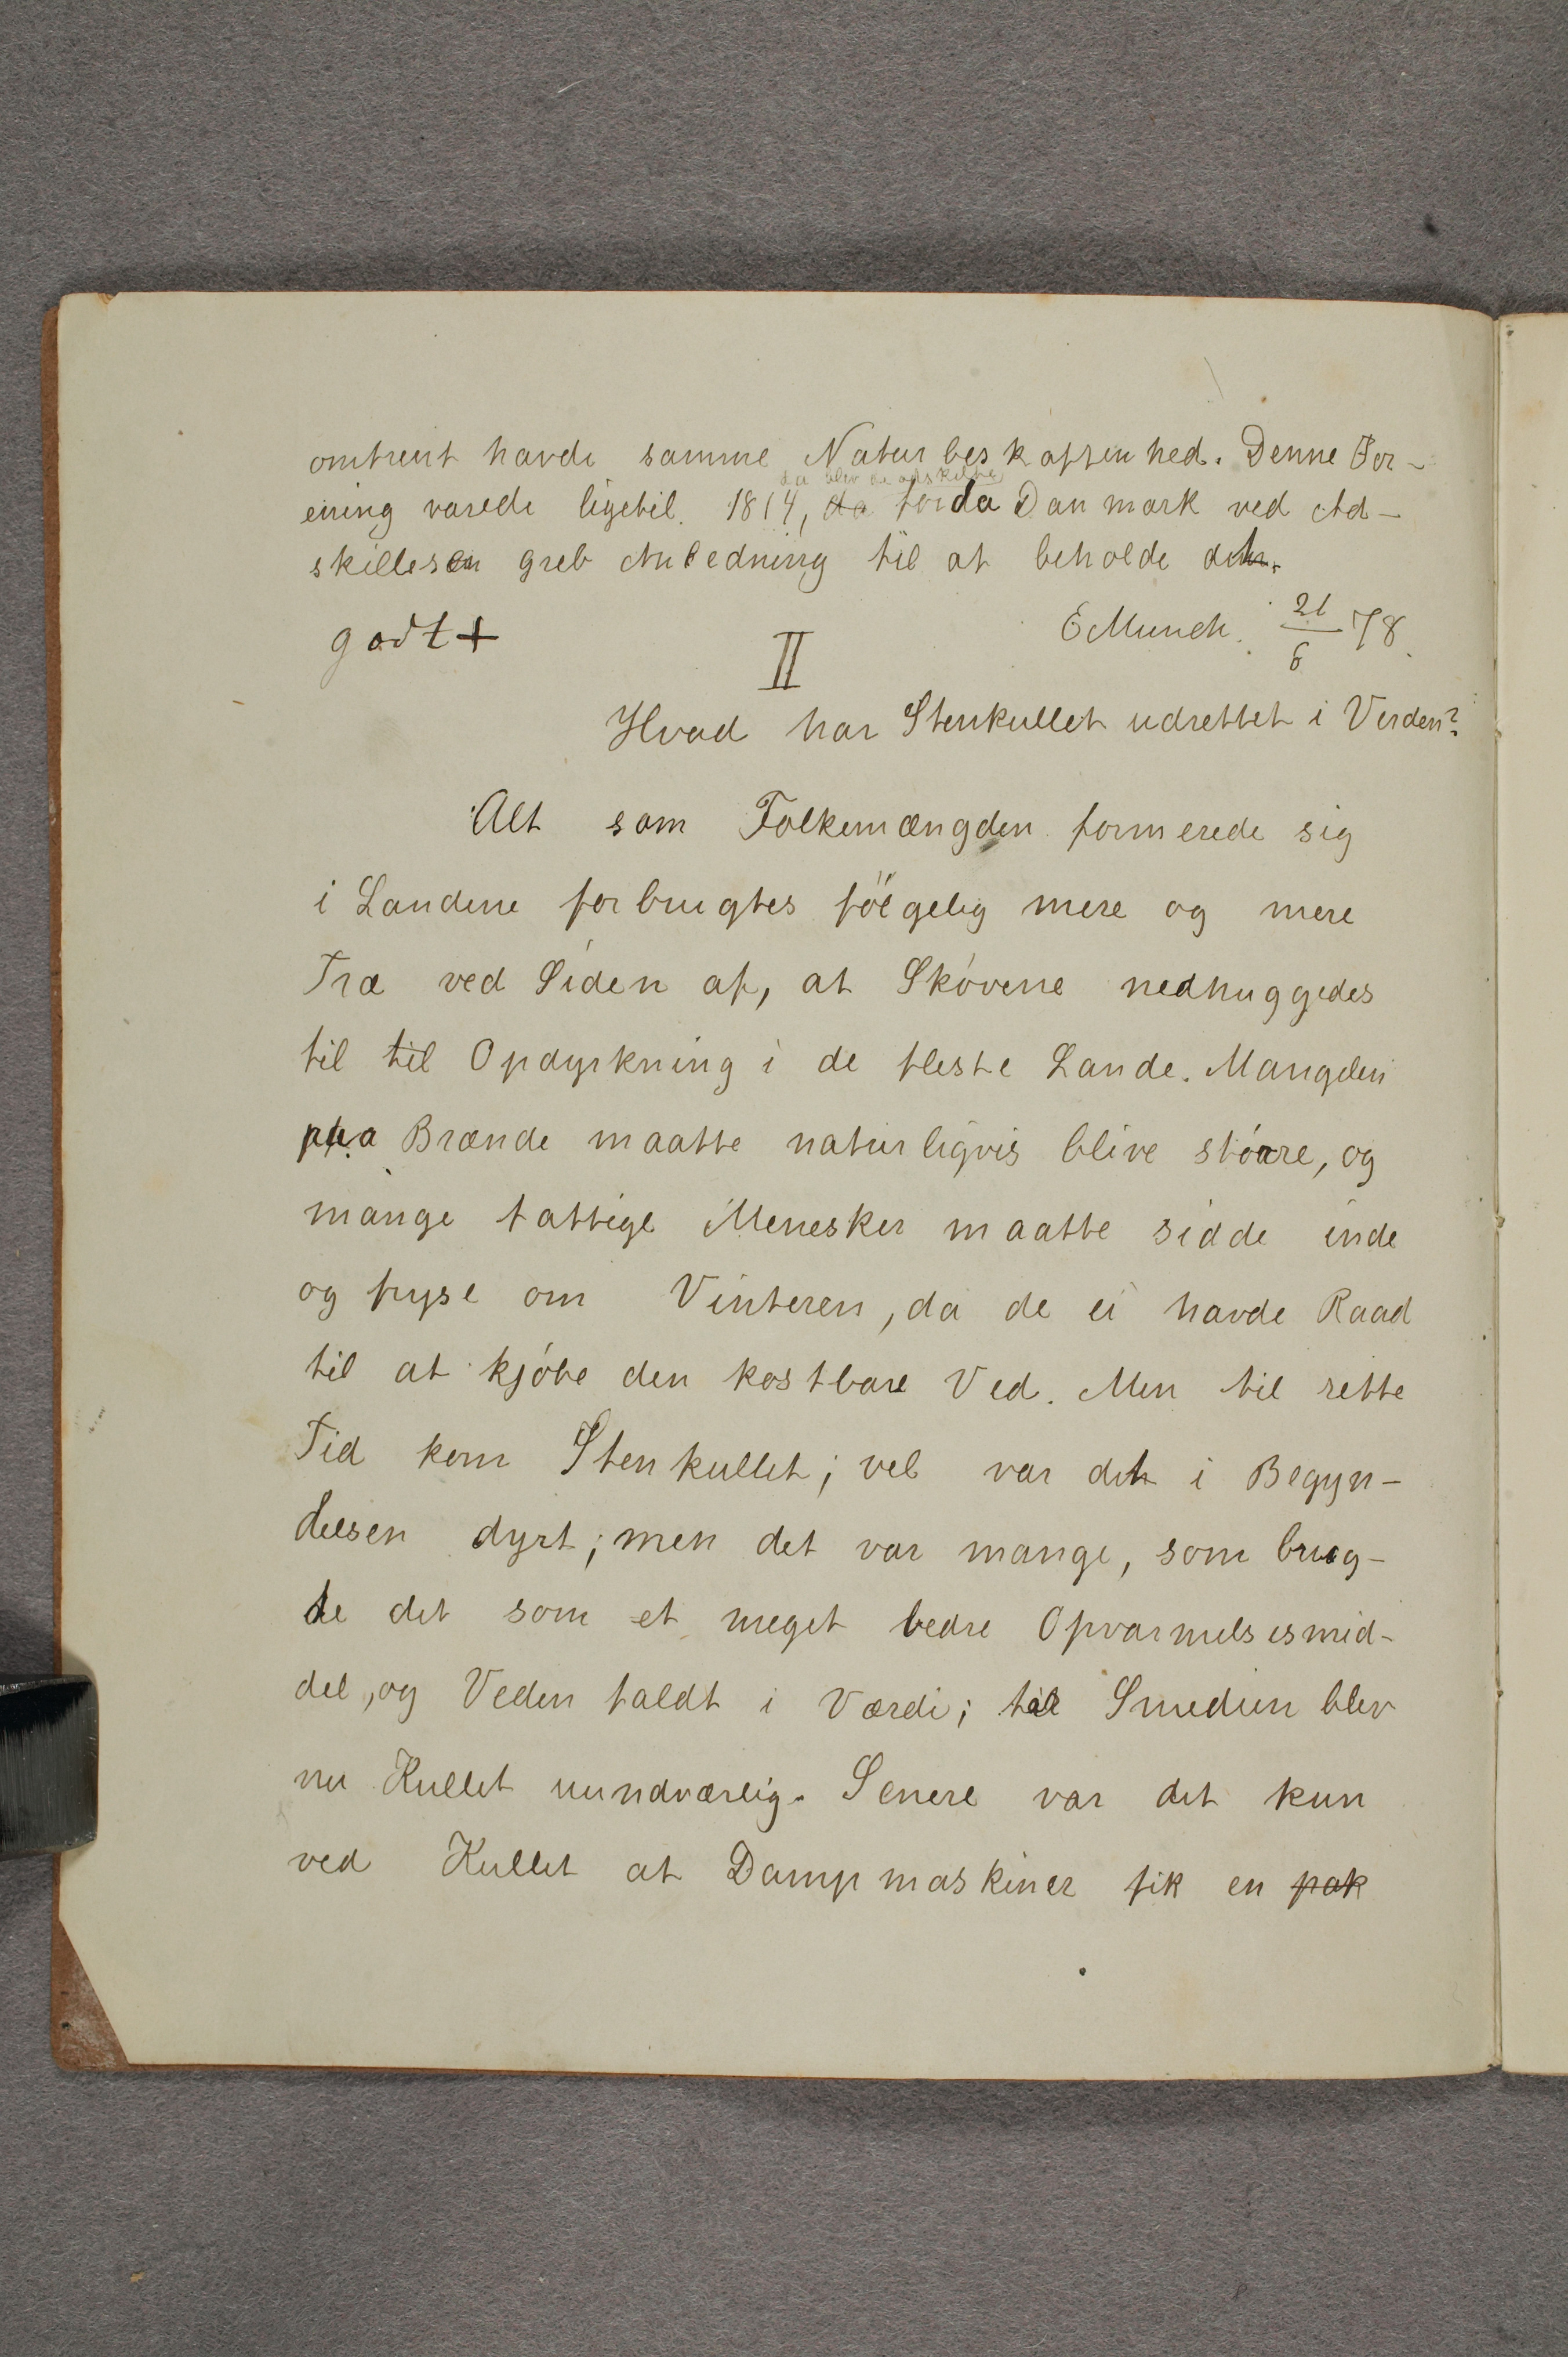 omtrent havde samme Naturbeskaffenhed. Denne For-
da blev de adskildte
ening varede ligetil 1814, da forda Danmark ved Ad-
skillesen greb Anledning til at beholde det.
godt+
EMunch. 21/6 78.
II
Hvad har Stenkullet udrettet i Verden?
Alt som Folkemængden formerede sig
i Landene forbrugtes følgelig mere og mere
Træ ved Siden af, at Skóvene nedhuggedes
til til Opdyrkning i de fleste Lande. Mangelen
paa Brænde maatte naturligvis blive større, og
mange fattige Menesker maatte sidde inde
og fryse om Vinteren, da de ei havde Raad
til at kjóbe den kostbare Ved. Men til rette
Tid kom Stenkullet; vel var det i Begyn-
delsen dyrt; men det var mange, som brug-
te det som et meget bedre Opvarmelsesmid-
del, og Veden faldt i Værdi; til Smedien blev
nu Kullet uundværlig. Senere var det kun
ved Kullet at Dampmaskiner fik en pak